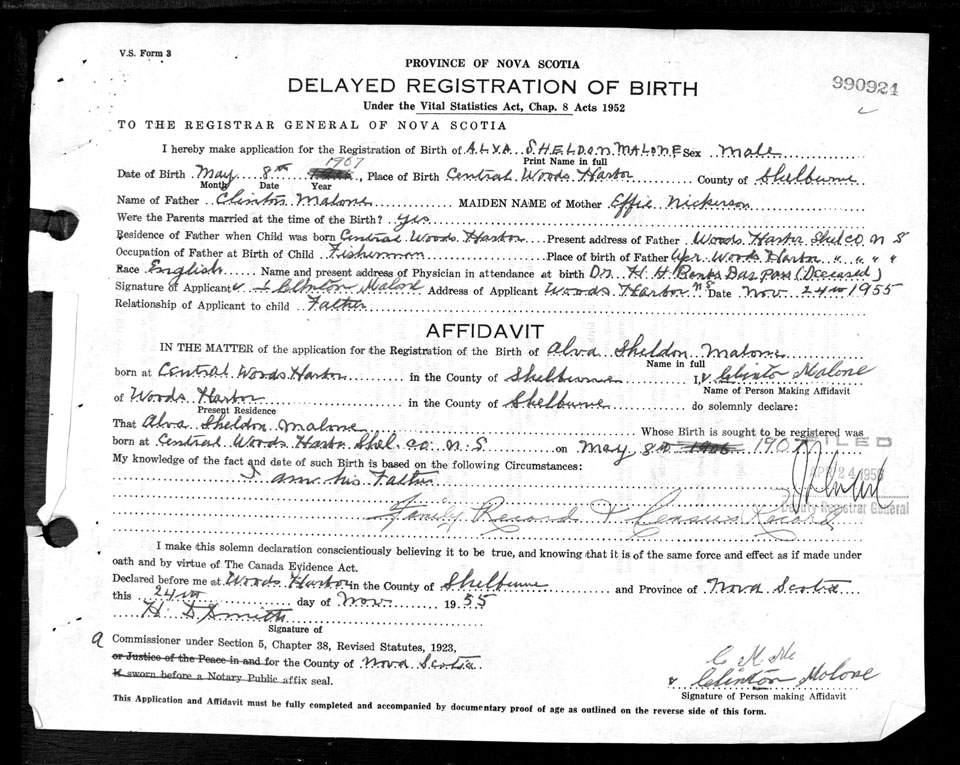 V.S. Form 3
PROVINCE OF NOVA SCOTIA
DELAYED REGISTRATION OF BIRTH
990924
Under the Vital Statistics Act, Chap. 8 Acts 1952
TO THE REGISTRAR GENERAL OF NOVA SCOTIA
I hereby make application for the Registration of Birth of ALVA SHELDON MALONE Sex Male
Print Name in full
1907
Date of Birth May 8th 1906, Place of Birth Central Woods Harbor County of Shelburne
Month Date Year
Name of Father Clinton Malone MAIDEN NAME of Mother Effie Nickerson
Were the Parents married at the time of the Birth? yes
Residence of Father when Child was born Central Woods Harbor Present address of Father Woods Harbor Shel co N S
Occupation of Father at Birth of Child Fisherman Place of birth of Father Upr Woods Harbor " " " "
Race English Name and present address of Physician in attendance at birth Dr. H H Banks Bar Pass (Deceased)
Signature of Applicant Clinton Malone Address of Applicant Woods Harbor NS Date Nov 24th 1955
Relationship of Applicant to child Father
AFFIDAVIT
IN THE MATTER of the application for the Registration of the Birth of Alva Sheldon Malone
Name in full
born at Central Woods Harbor in the County of Shelburne I, Clinton Malone
Name of Person Making Affidavit
of Woods Harbor in the County of Shelburne do solemnly declare:
Present Residence
That Alva Sheldon Malone Whose Birth is sought to be registered was
born at Central Woods Harbor Shel. co. N. S on May 8th 1906 1907
FILED
My knowledge of the fact and date of such Birth is based on the following Circumstances:
I am his Father
APR 24 1956
Deputy Registrar General
Family Record & Census Record
I make this solemn declaration conscientiously believing it to be true, and knowing that it is of the same force and effect as if made under
oath and by virtue of The Canada Evidence Act.
Declared before me at Woods Harbor in the County of Shelburne and Province of Nova Scotia
this 24th day of Nov 1955
H. D Smith
Signature of
a Commissioner under Section 5, Chapter 38, Revised Statutes, 1923,
or Justice of the Peace in and for the County of Nova Scotia
If sworn before a Notary Public affix seal.
Clinton Malone
Signature of Person making Affidavit
This Application and Affidavit must be fully completed and accompanied by documentary proof of age as outlined on the reverse side of this form.